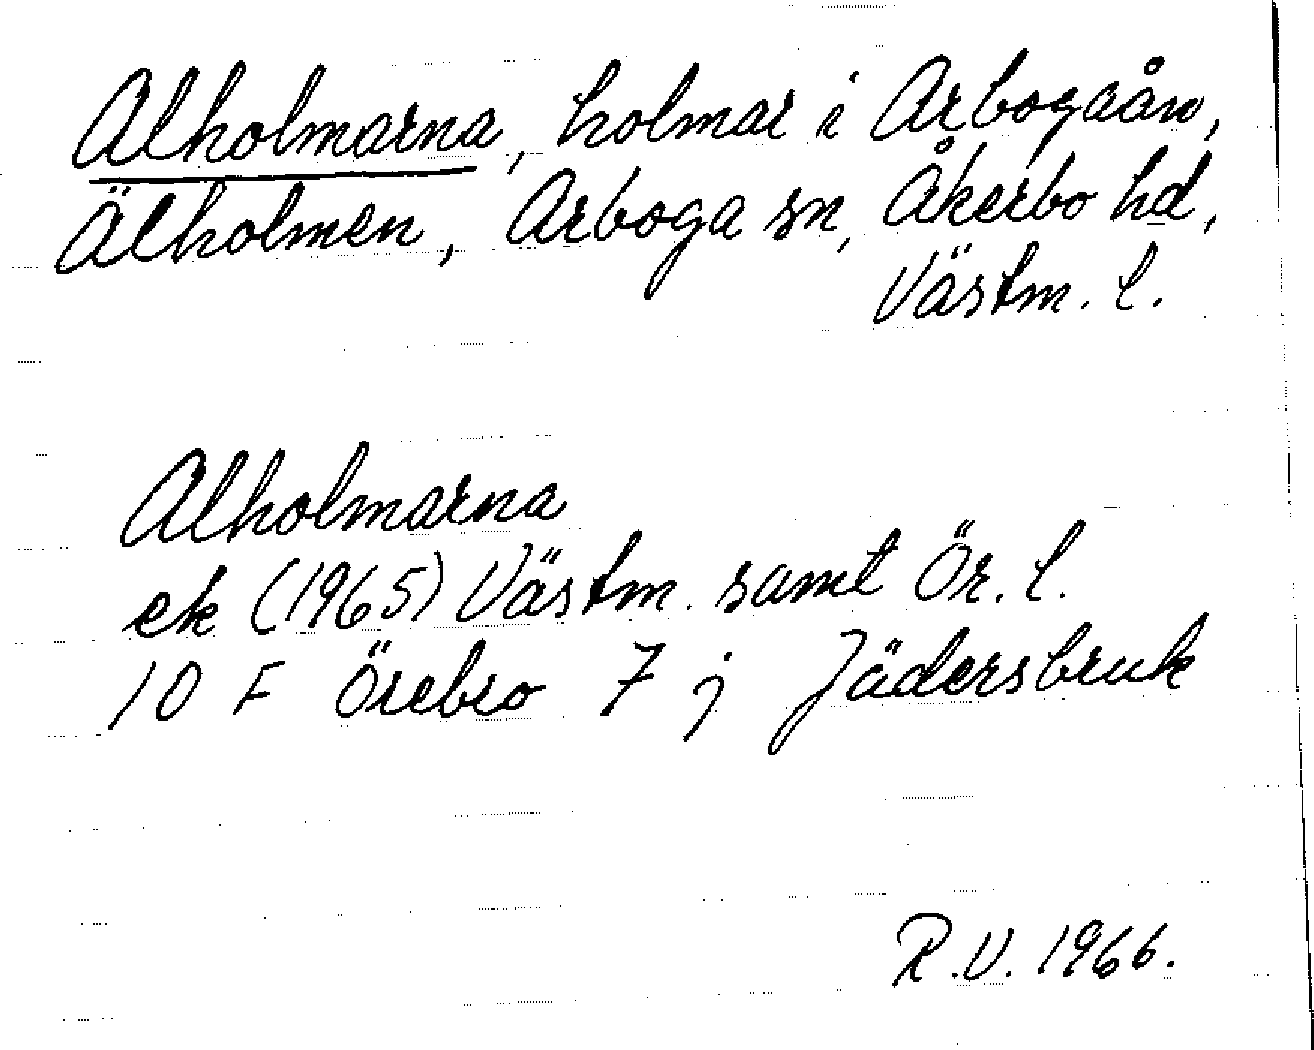 Alholmarna, holmar i Arbogaån,
Älholmen, Arboga sn, Åkerbo hd,
Västm. l.
Alholmarna
ek (1965) Västm. samt Ör. l.
10 F Örebro 7 j Jädersbruk
R.V. 1966.